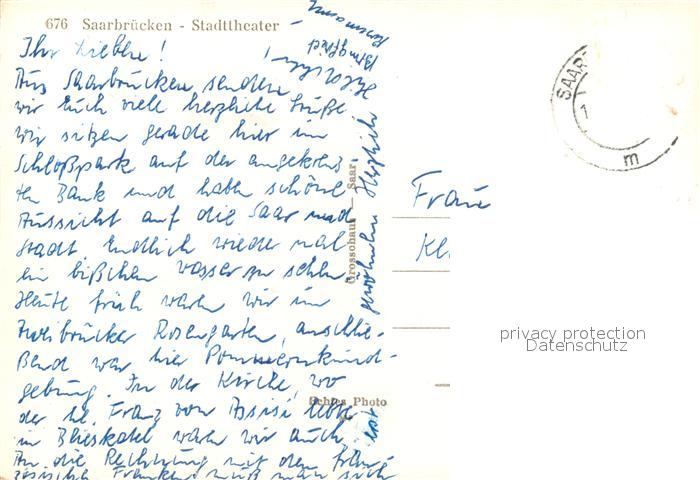 676 Saarbrücken - Stadttheater
Ihr Lieben!
Aus Saarbrücken senden
wir Euch viele herzliche Grüße.
Wir sitzen gerade hier im
Schloßpark auf der angekreuz-
ten Bank und haben schöne
Aussicht auf die Saar und
Stadt. Endlich wieder mal
ein bißchen Wasser zu sehen
Heute früh waren wir im
Zweibrücker Rosengarten, anschlie-
ßend war hier Pommernkund-
gebung. In der Kirche, wo
der hl. Franz von Assisi lebte
in Blieskastel waren wir auch.
An die Rechnung mit den franzö-
zösischen Franken muß man sich
erst
gewöhnen Herzlichst
Grosshaus Saar
Echtes Photo
Frau
Kl
SAAR
1
m
privacy protection
Datenschutz